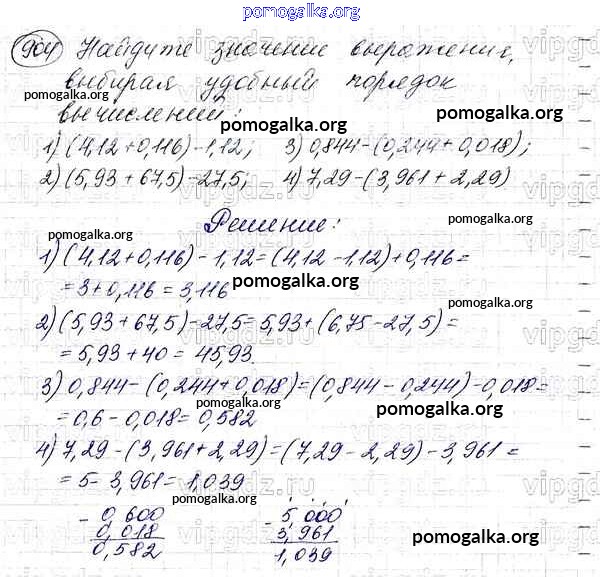 pomogalka.org
904 Найдите значение выражения,
выбирая удобный порядок
вычислений:
pomogalka.org
1) (4,12+0,116)-1,12; 3) 0,844-(0,244+0,018);
2) (5,93+67,5)-27,5; 4) 7,29-(3,961+2,29)
pomogalka.org
Решение:
pomogalka.org
1) (4,12+0,116)-1,12=(4,12-1,12)+0,116=
=3+0,116=3,116
pomogalka.org
pomogalka.org
2) (5,93+67,5)-27,5=5,93+(6,75-27,5)=
=5,93+40=45,93.
pomogalka.org
3) 0,844-(0,244+0,018)=(0,844-0,244)-0,018=
=0,6-0,018=0,582
pomogalka.org
4) 7,29-(3,961+2,29)=(7,29-2,29)-3,961=
=5-3,961=1,039
pomogalka.org
-0,600 -5,000
0,018 3,961
pomogalka.org pomogalka.org
0,582 1,039